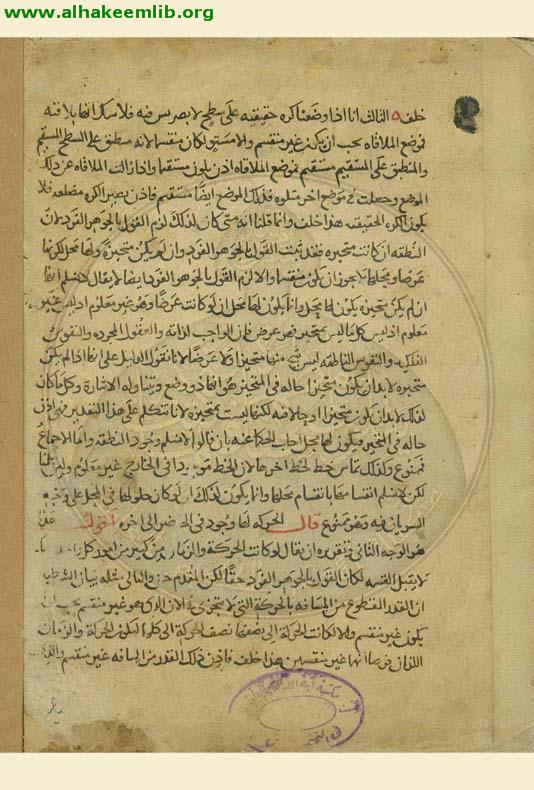 www.alhakeemlib.org
خلف ٥ الثالث انا اذا وضعنا كره حقيقيه على سطح لا تضريس فيه فلا شك انها يلاقيه
فموضع الملاقاه يجب ان يكون غير منقسم والا مستو لكان منقسما لانه منطبق على السطح المستقيم
والمنطبق على المستقيم مستقيم فموضع الملاقاه اذن يكون مستقيما واذا زالت الملاقاه عن ذلك
الموضع وحصلت فى موضع اخر متلوه فذلك الموضع ايضا مستقيم فاذن يصير الكره مضلعه فلا
يكون الكره حقيقيه هذا خلف وانما قلنا انه متى كان لذلك لزم القول بالجوهر الفرد لان
النقطه ان كانت متحيزه فقد ثبت القول بالجوهر الفرد وان لم يكن متحيزة ولها محل لكونها
عرضا ومحلها لا يجوز ان يكون منقسما والا لزم القول بالجوهر الفرد ايضا لا يقال لا نسلم انها
ان لم يكن متحيزه يكون لها محل وانما يكون لها محل ان لو كانت عرضا وهو غير معلوم اذ ليس غير
معلوم اذ ليس كل ما ليس بمتحيز فهو عرض فان الواجب لذاته والعقول المجرده والنفوس
الفلكيه والنفوس الناطقه ليس شى منها متحيزا ولا عرضا لانا نقول الدليل على انها اذا لم يكن
متحيزه لا بد ان يكون متحيزا حاله فى المتحيز هو انها ذو وضع ويتناوله الاشارة وكل ما كان
لذلك لا بد ان يكون متحيزا او حالا فيه لكنها ليست بمتحيزه لانا نتكلم على هذا التقدير فهى اذن
حاله فى المتحيز فيكون لها محل اجاب الحكما عنه بان قالوا لا نسلم وجود النقطه واما الاجماع
فممنوع وكذلك تماس خط لخط اخر لان الخط موجود فى الخارج غير معلوم ولئن سلمنا
لكن لا نسلم انقسامها بانقسام محلها وانما يكون لذلك ان لو كان حلولها فى المحل على وجه
السريان فيه وهو ممنوع قال الحركه لها وجود فى الحاضر الى اخره اقول هذا
هو الوجه الثانى وتقريره ان يقال لو كانت الحركة والزمان مركبين من امور كل
لا يقبل القسمه لكان القول بالجوهر الفرد حقا لكن المقدم حق والتالى مثله بيان الشرطيه
ان القدر المقطوع من المسافه بالحركة التى لا تتجزى فى الان الذى هو غير منقسم يجب ان
يكون غير منقسم والا لكانت الحركة الى نصفها نصف الحركة الى كلها فيكون الحركة والزمان
اللذان فرضا انها غير منقسمين هذا خلف فاذن ذلك القدر من المسافه غير منقسم والذى